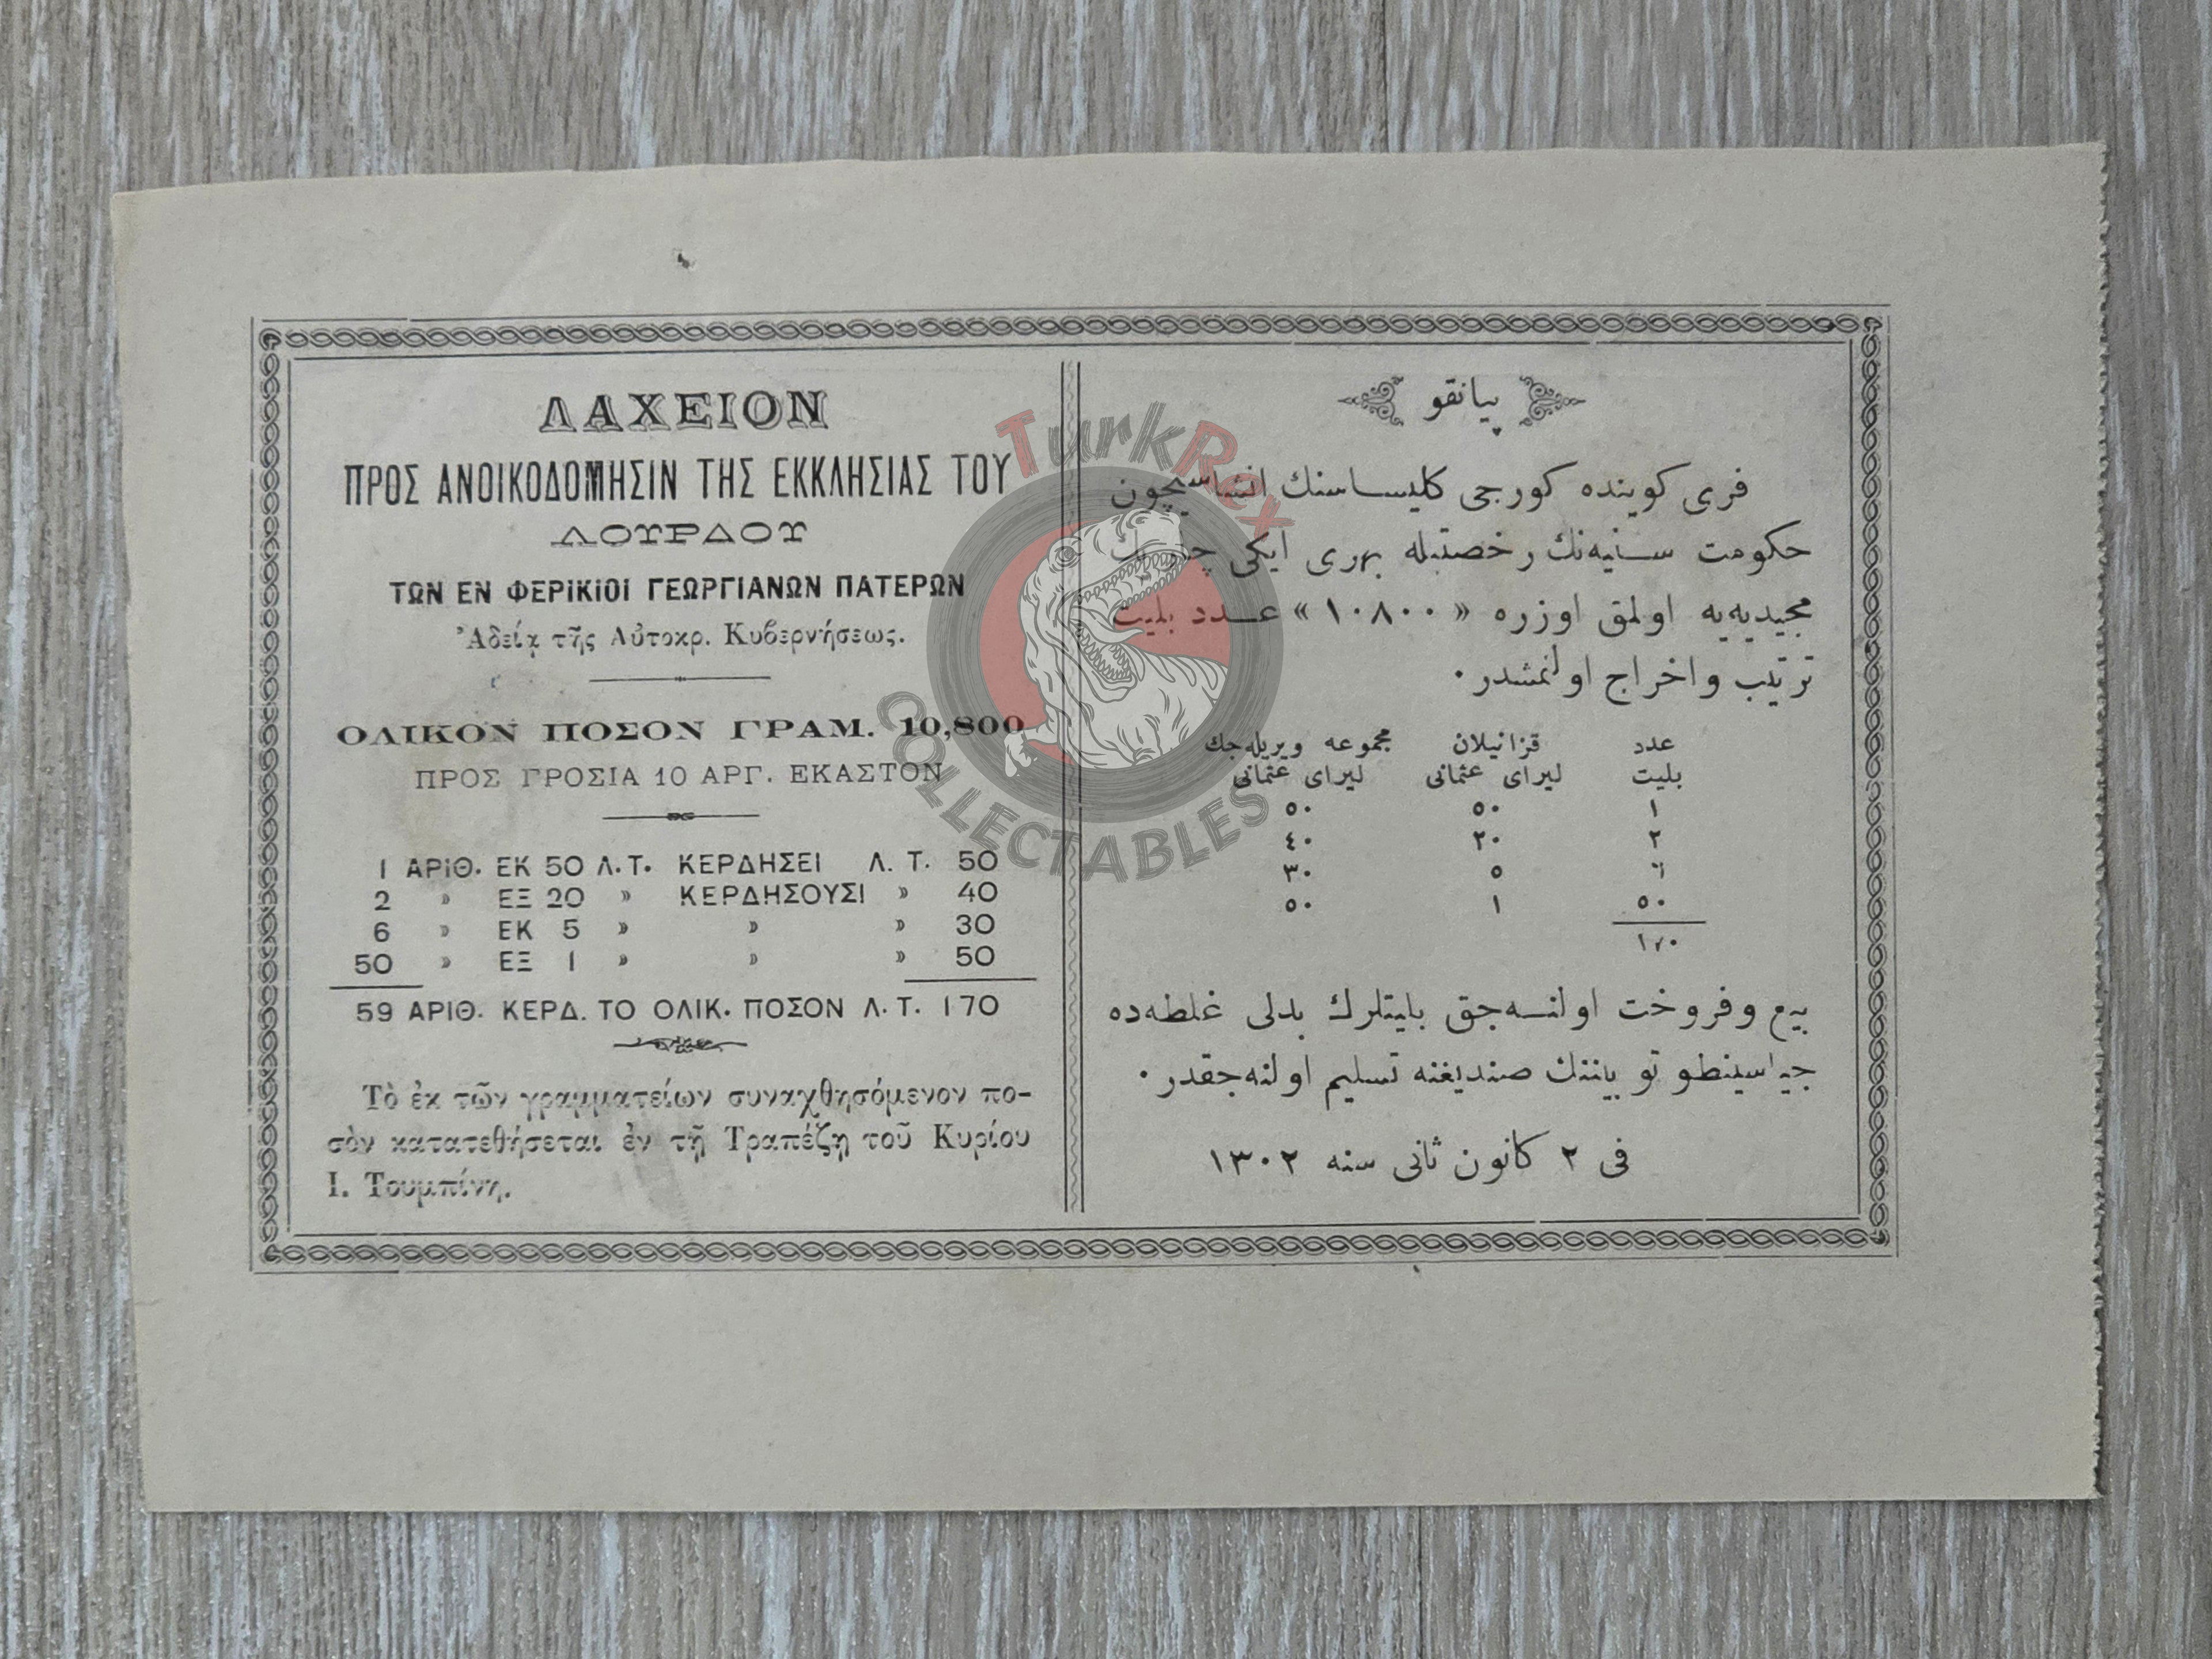 ΛΑΧΕΙΟΝ
ΠΡΟΣ ΑΝΟΙΚΟΔΟΜΗΣΙΝ ΤΗΣ ΕΚΚΛΗΣΙΑΣ ΤΟΥ
ΛΟΥΡΔΟΥ
ΤΩΝ ΕΝ ΦΕΡΙΚΙΟΙ ΓΕΩΡΓΙΑΝΩΝ ΠΑΤΕΡΩΝ
Ἀδείᾳ τῆς Αὐτοκρ. Κυβερνήσεως.
ΟΛΙΚΟΝ ΠΟΣΟΝ ΓΡΑΜ. 10,800
ΠΡΟΣ ΓΡΟΣΙΑ 10 ΑΡΓ. ΕΚΑΣΤΟΝ
1 ΑΡΙΘ. ΕΚ 50 Λ.Τ. ΚΕΡΔΗΣΕΙ Λ. Τ. 50
2 » ΕΞ 20 » ΚΕΡΔΗΣΟΥΣΙ » 40
6 » ΕΚ 5 » » » 30
50 » ΕΞ 1 » » » 50
59 ΑΡΙΘ. ΚΕΡΔ. ΤΟ ΟΛΙΚ. ΠΟΣΟΝ Λ. Τ. 170
Τὸ ἐκ τῶν γραμματείων συναχθησόμενον πο-
σὸν κατατεθήσεται ἐν τῇ Τραπέζῃ τοῦ Κυρίου
Ι. Τουμπίνη.
پیانقو
فری کوینده کورجی کلیساسنك انشاسیچون
حکومت سنیه‌نك رخصتیله بهری ایکی
مجیدیه‌یه اولمق اوزره « ١٠٨٠٠ » عدد بلیت
ترتیب و اخراج اولنمشدر.
عدد قزانیلان مجموعه ویریله‌جك
بلیت لیرای عثمانی لیرای عثمانی
١ ٥٠ ٥٠
٢ ٢٠ ٤٠
٦ ٥ ٣٠
٥٠ ١ ٥٠
١٧٠
بیع و فروخت اولنه‌جق بلیتلرك بدلی غلطه‌ده
جیاسینطو توبینینك صندیغنه تسلیم اولنه‌جقدر.
فی ٢ کانون ثانی سنه ١٣٠٢
TurkRex
COLLECTABLES